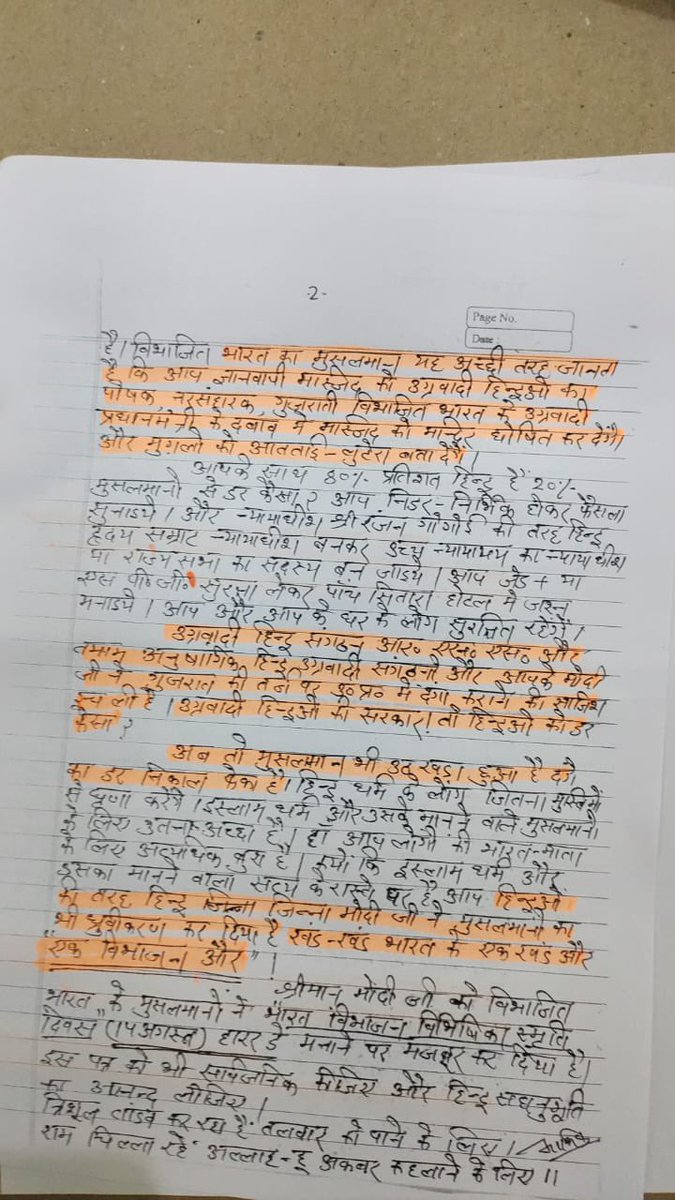 -2-
Page No.
Date
है। विभाजित भारत का मुसलमान यह अच्छी तरह जानता
है कि आप ज्ञानवापी मस्जिद को उग्रवादी हिन्दुओं का
पोषक, नरसंहारक, गुजराती विभाजित भारत के उग्रवादी
प्रधानमंत्री के दबाव में मास्जिद को मन्दिर घोषित कर देंगे।
और मुगलों को आतताई-लुटेरा बता देंगे।
आपके साथ 80% प्रतिशत हिन्दू हैं 20%
मुसलमानो से डर कैसा? आप निडर-निर्भिक होकर फैसला
सुनाइये। और न्यायाधीश श्री रंजन गोगोई की तरह हिन्दू
हृदय सम्राट न्यायाधीश बनकर उच्च न्यायालय का न्यायाधीश
या राज्य सभा का सदस्य बन जाइये। आप जेड + या
एस पी० जी० सुरक्षा लेकर पाँच सितारा होटल में जश्न
मनाइये। आप और आप के घर के लोग सुरक्षित रहेगें।
उग्रवादी हिन्दू सगठन आर० एस० एस० और
तमाम अनुषांगिक हिन्दू उग्रवादी संगठनो और आपके मोदी
जी ने गुजरात की तर्ज पर उ० प्र० में दंगा कराने की साजिश
रच ली है। उग्रवादी हिन्दुओं की सरकार! तो हिन्दुओं को डर
कैसा?
अब तो मुसलमान भी उठ खड़ा हुआ है दंगे
का डर निकाल फेंका है। हिन्दू धर्म के लोग जितना मुस्लिमों
से घृणा करेंगे। इस्लाम धर्म और उसके मानने वाले मुसलमानो
के लिए उतना अच्छा है। हाँ आप लोगों की भारत-माता
के लिए अत्यधिक बुरा है। क्यो कि इस्लाम धर्म और
इसका मानने वाला सत्य के रास्ते पर है आप हिन्दुओं
की तरह हिन्दू जिन्ना मोदी जी ने मुसलमानो का
भी ध्रुवीकरण कर दिया है खंड-खंड भारत के एक खंड और
"एक विभाजन और"!
श्रीमान मोदी जी को विभाजित
भारत के मुसलमानो ने "भारत विभाजन विभिषिका स्मृति
दिवस" (14 अगस्त) हारर डे मनाने पर मजबूर कर दिया है।
इस पत्र को भी सार्वजनिक कीजिए और हिन्दू सहानुभूति
का आनन्द लीजिए।
त्रिशूल तांडव कर रहा है तलवार को पाने के लिए।
राम चिल्ला रहे अल्लाह-हू अकबर कहलाने के लिए॥